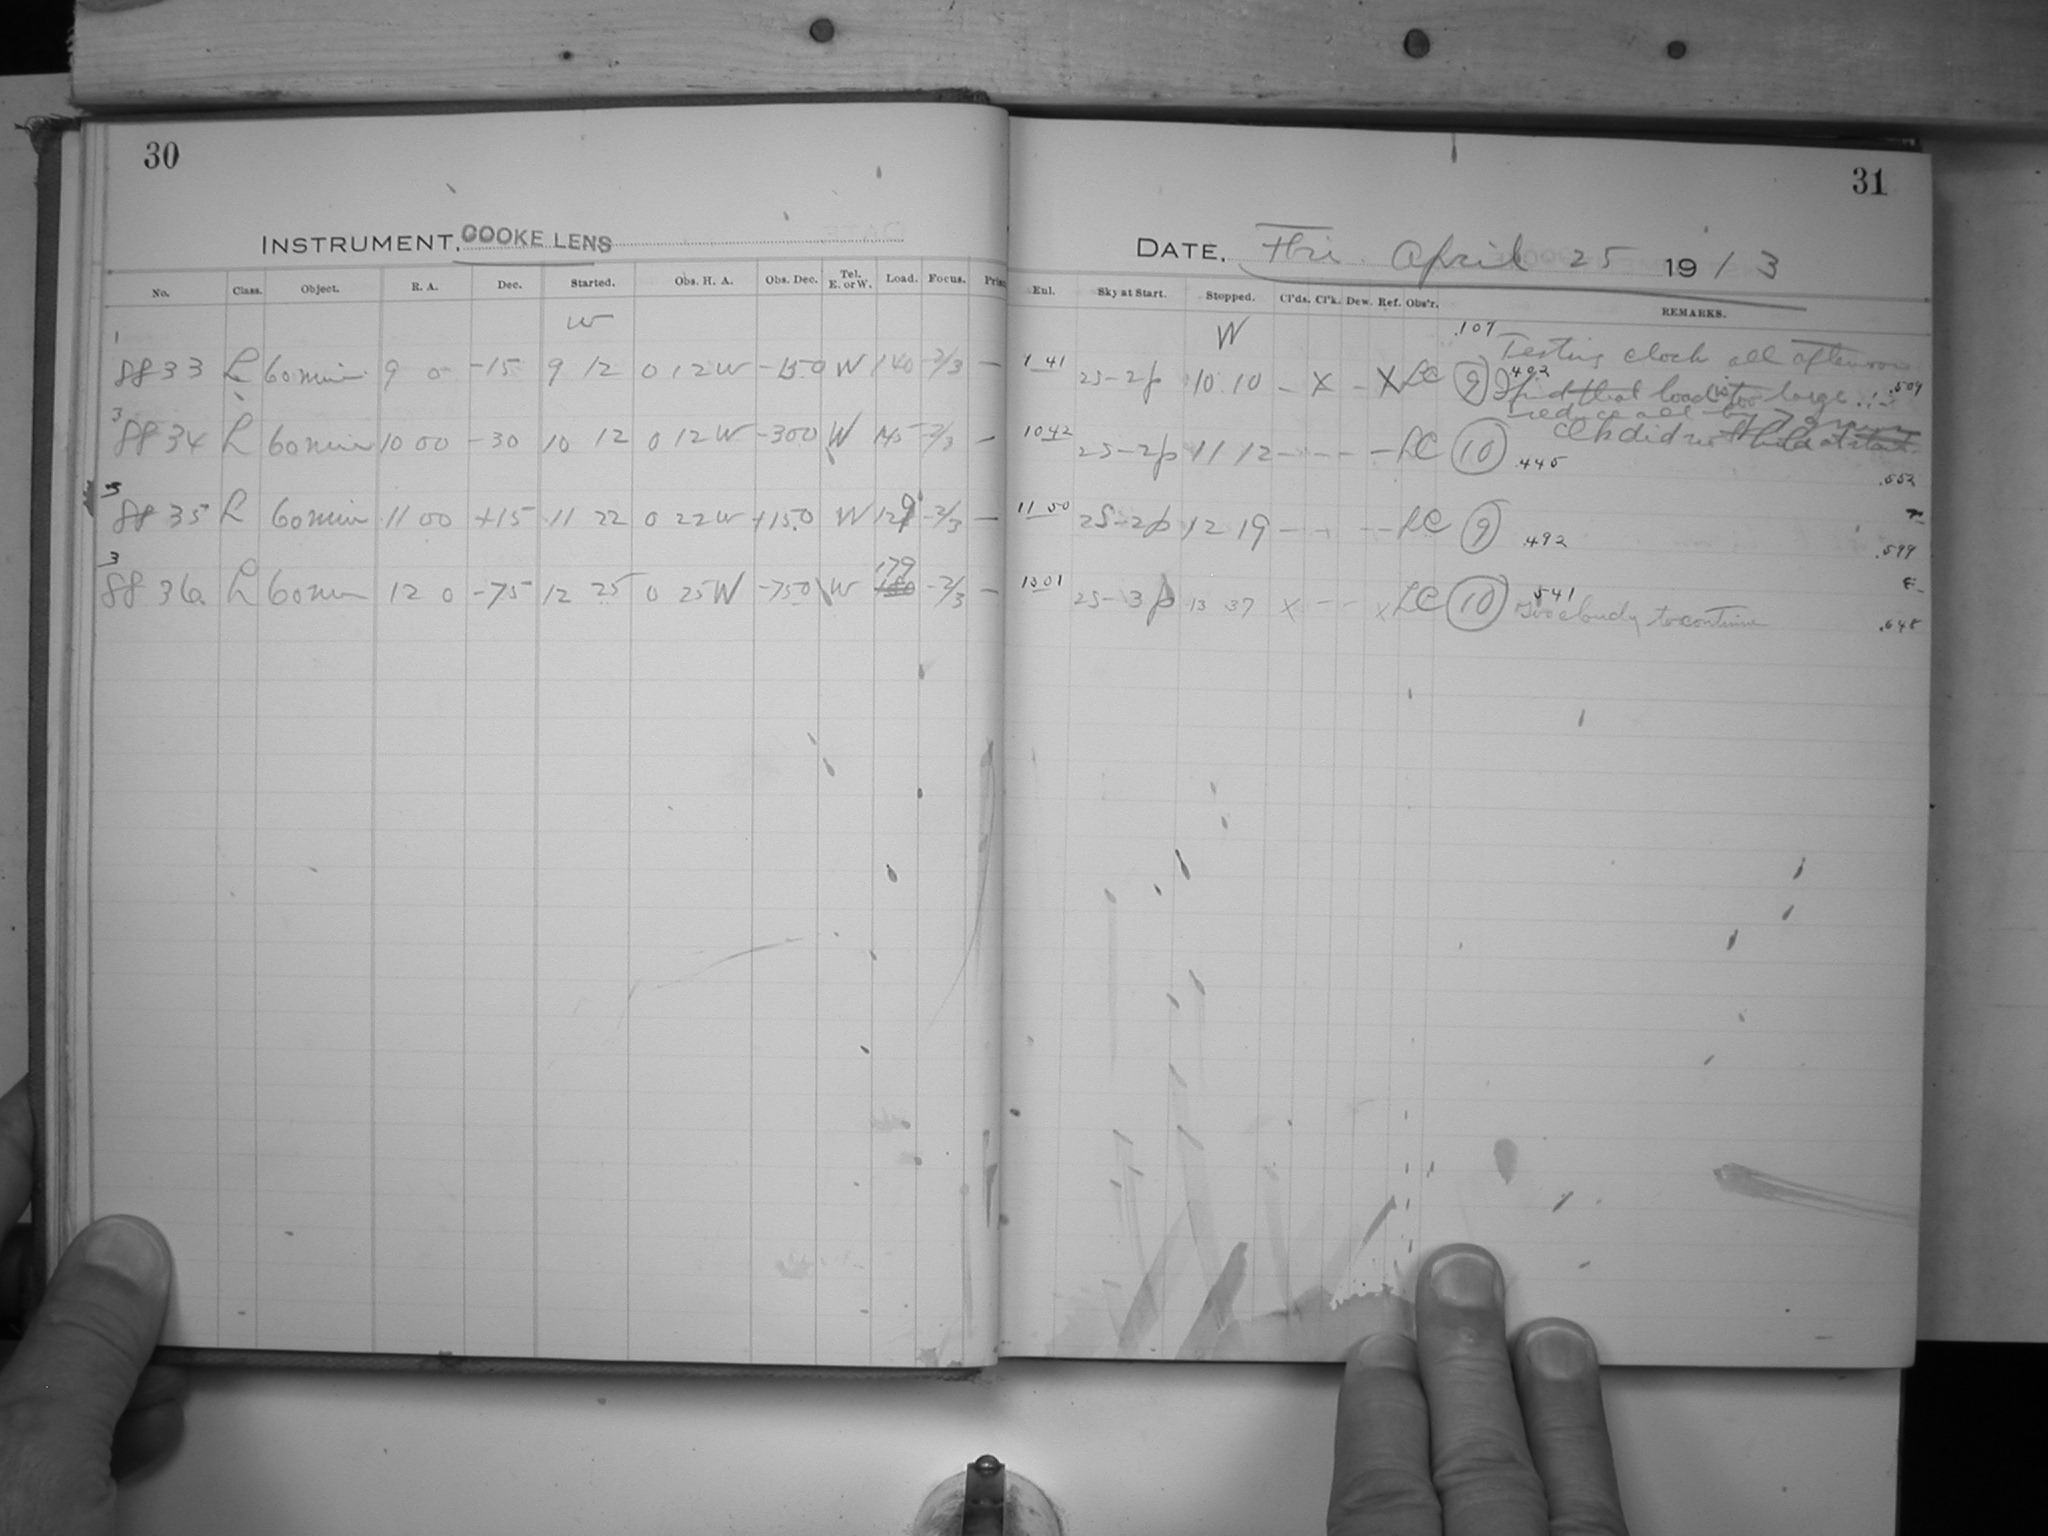 30
INSTRUMENT. COOKE LENS
No. Class. Object. R. A. Dec. Started. Obs. H. A. Obs. Dec. Tel. E. or W. Load. Focus.
W
1
8833 L 60 min 9 0 -15 9 12 0 12 W -15 0 W 140 -2/3 —
3
8834 L 60 min 10 00 -30 10 12 0 12 W -30 0 W 145 -2/3 —
3
8835 L 60 min 11 00 +15 11 22 0 22 W +15 0 W 129 -2/3 —
3
8836 L 60 min 12 0 -75 12 25 0 25 W -75 0 W 179 -2/3 —
31
DATE. Fri. April 25 1913
Eul. Sky at Start. Stopped. Cl'ds. Cl'k. Dew. Ref. Obs'r. REMARKS.
W
.107 Testing clock all afternoon
1 41 2S-2p 10 10 - X - X LC 9 .402 I find that load is too large .509
reduce all by
10 42 2S-2p 11 12 - - - - LC 10 .445 Clk did not hold at start .552
11 50 2S-2p 12 19 - - - - LC 9 .492 .599
13 01 2S-3p 13 37 X - - X LC 10 .541 Too cloudy to continue .648